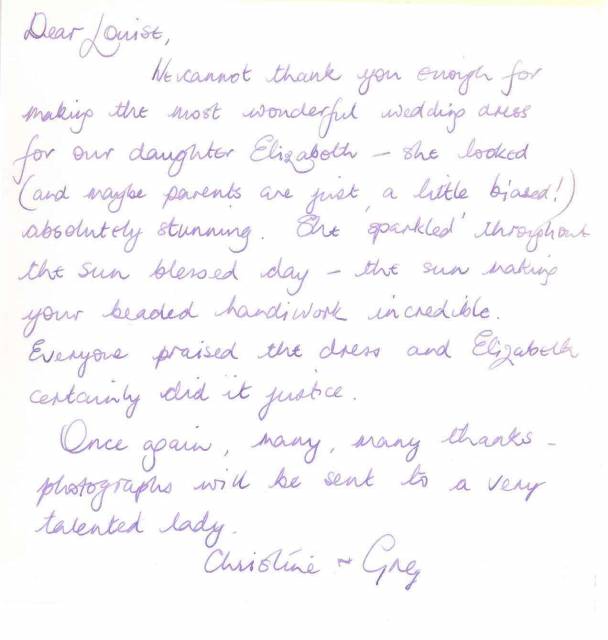 Dear Louise,
We cannot thank you enough for
making the most wonderful wedding dress
for our daughter Elizabeth – she looked
(and maybe parents are just a little biased!)
absolutely stunning. She 'sparkled' throughout
the sun blessed day – the sun making
your beaded handiwork incredible.
Everyone praised the dress and Elizabeth
certainly did it justice.
Once again, many, many thanks –
photographs will be sent to a very
talented lady.
Christine ~ Greg